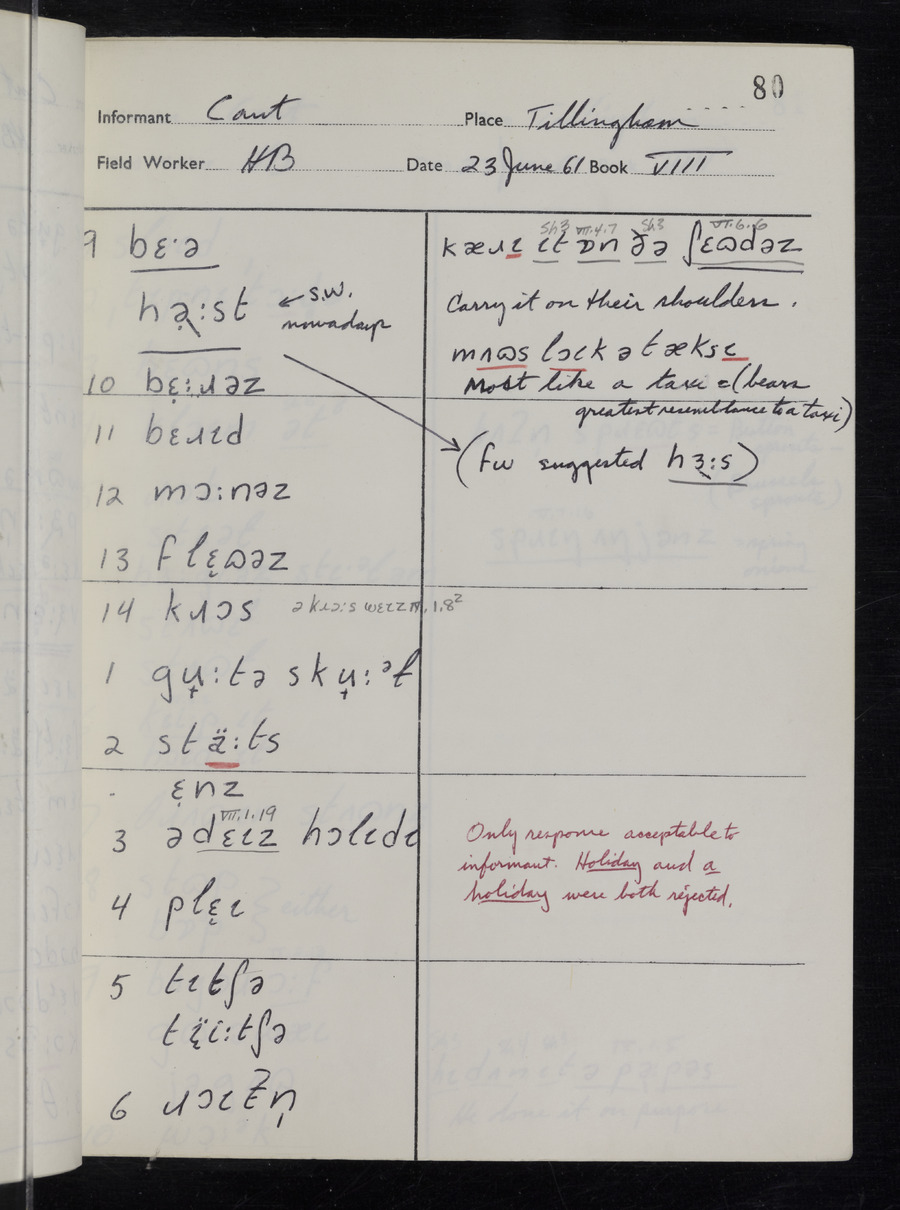 80
Informant Cant Place Tillingham
Field Worker HB Date 23 June 61 Book VIII
9 bɛ·ə
hə̣:st ← s.w. nowadays
10 bɛ̨:ɹəz
11 bɛɹɪd
12 mɔ:nəz
13 flɛ̨ɷəz
14 kɹɔs ə kɹɔ:s wɛɪz IV.1.8²
1 gʉ̟:tə skʉ̟:ᵊɫ
2 stä:ts
ɛ̨nz
3 ədɛɪz hɔlɪdɪ
VII.1.19
4 plɛ̨ɪ
5 tɪtʃə
tɛ̨̈i:tʃə
6 ɹɔɪẒn̩
Sh3 VII.4.7 Sh3 VI.6.6
kæɹɪ ɪt ɒn ðə ʃɛɷdəz
Carry it on their shoulders.
mʌɷs lɔɪk ə tæksɪ
Most like a taxi = (bears
greatest resemblance to a taxi)
(fw suggested hɜ:s)
Only response acceptable to
informant. Holiday and a
holiday were both rejected.